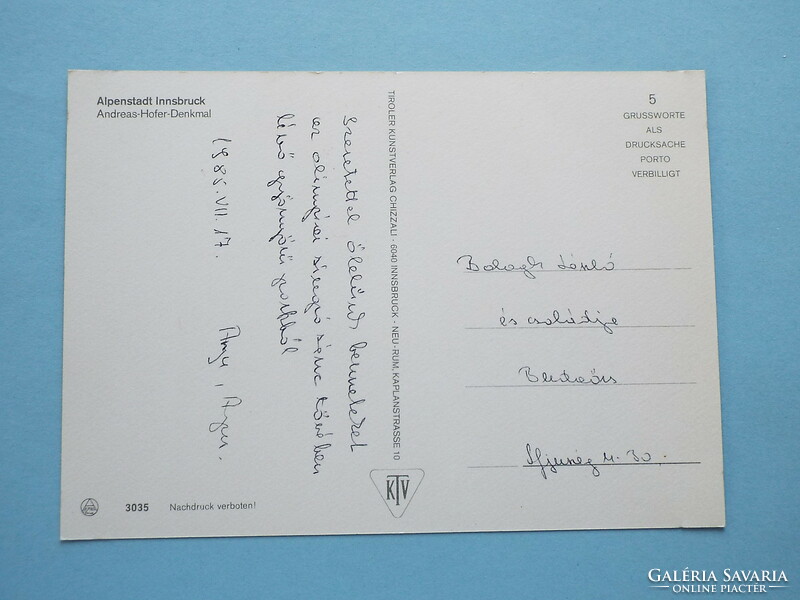 Alpenstadt Innsbruck
Andreas-Hofer-Denkmal
Szeretettel ölelünk benneteket
az olimpiai síugró sánc tövében
lévő gyönyörű parkból
1985. VII. 17.
Anyu, Apu.
TIROLER KUNSTVERLAG CHIZZALI - 6040 INNSBRUCK - NEU-RUM, KAPLANSTRASSE 10
KTV
5
GRUSSWORTE
ALS
DRUCKSACHE
PORTO
VERBILLIGT
Balogh László
és családja
Budaörs
Ifjúság u. 30.
3035 Nachdruck verboten!
GALÉRIA SAVARIA
ONLINE PIACTÉR